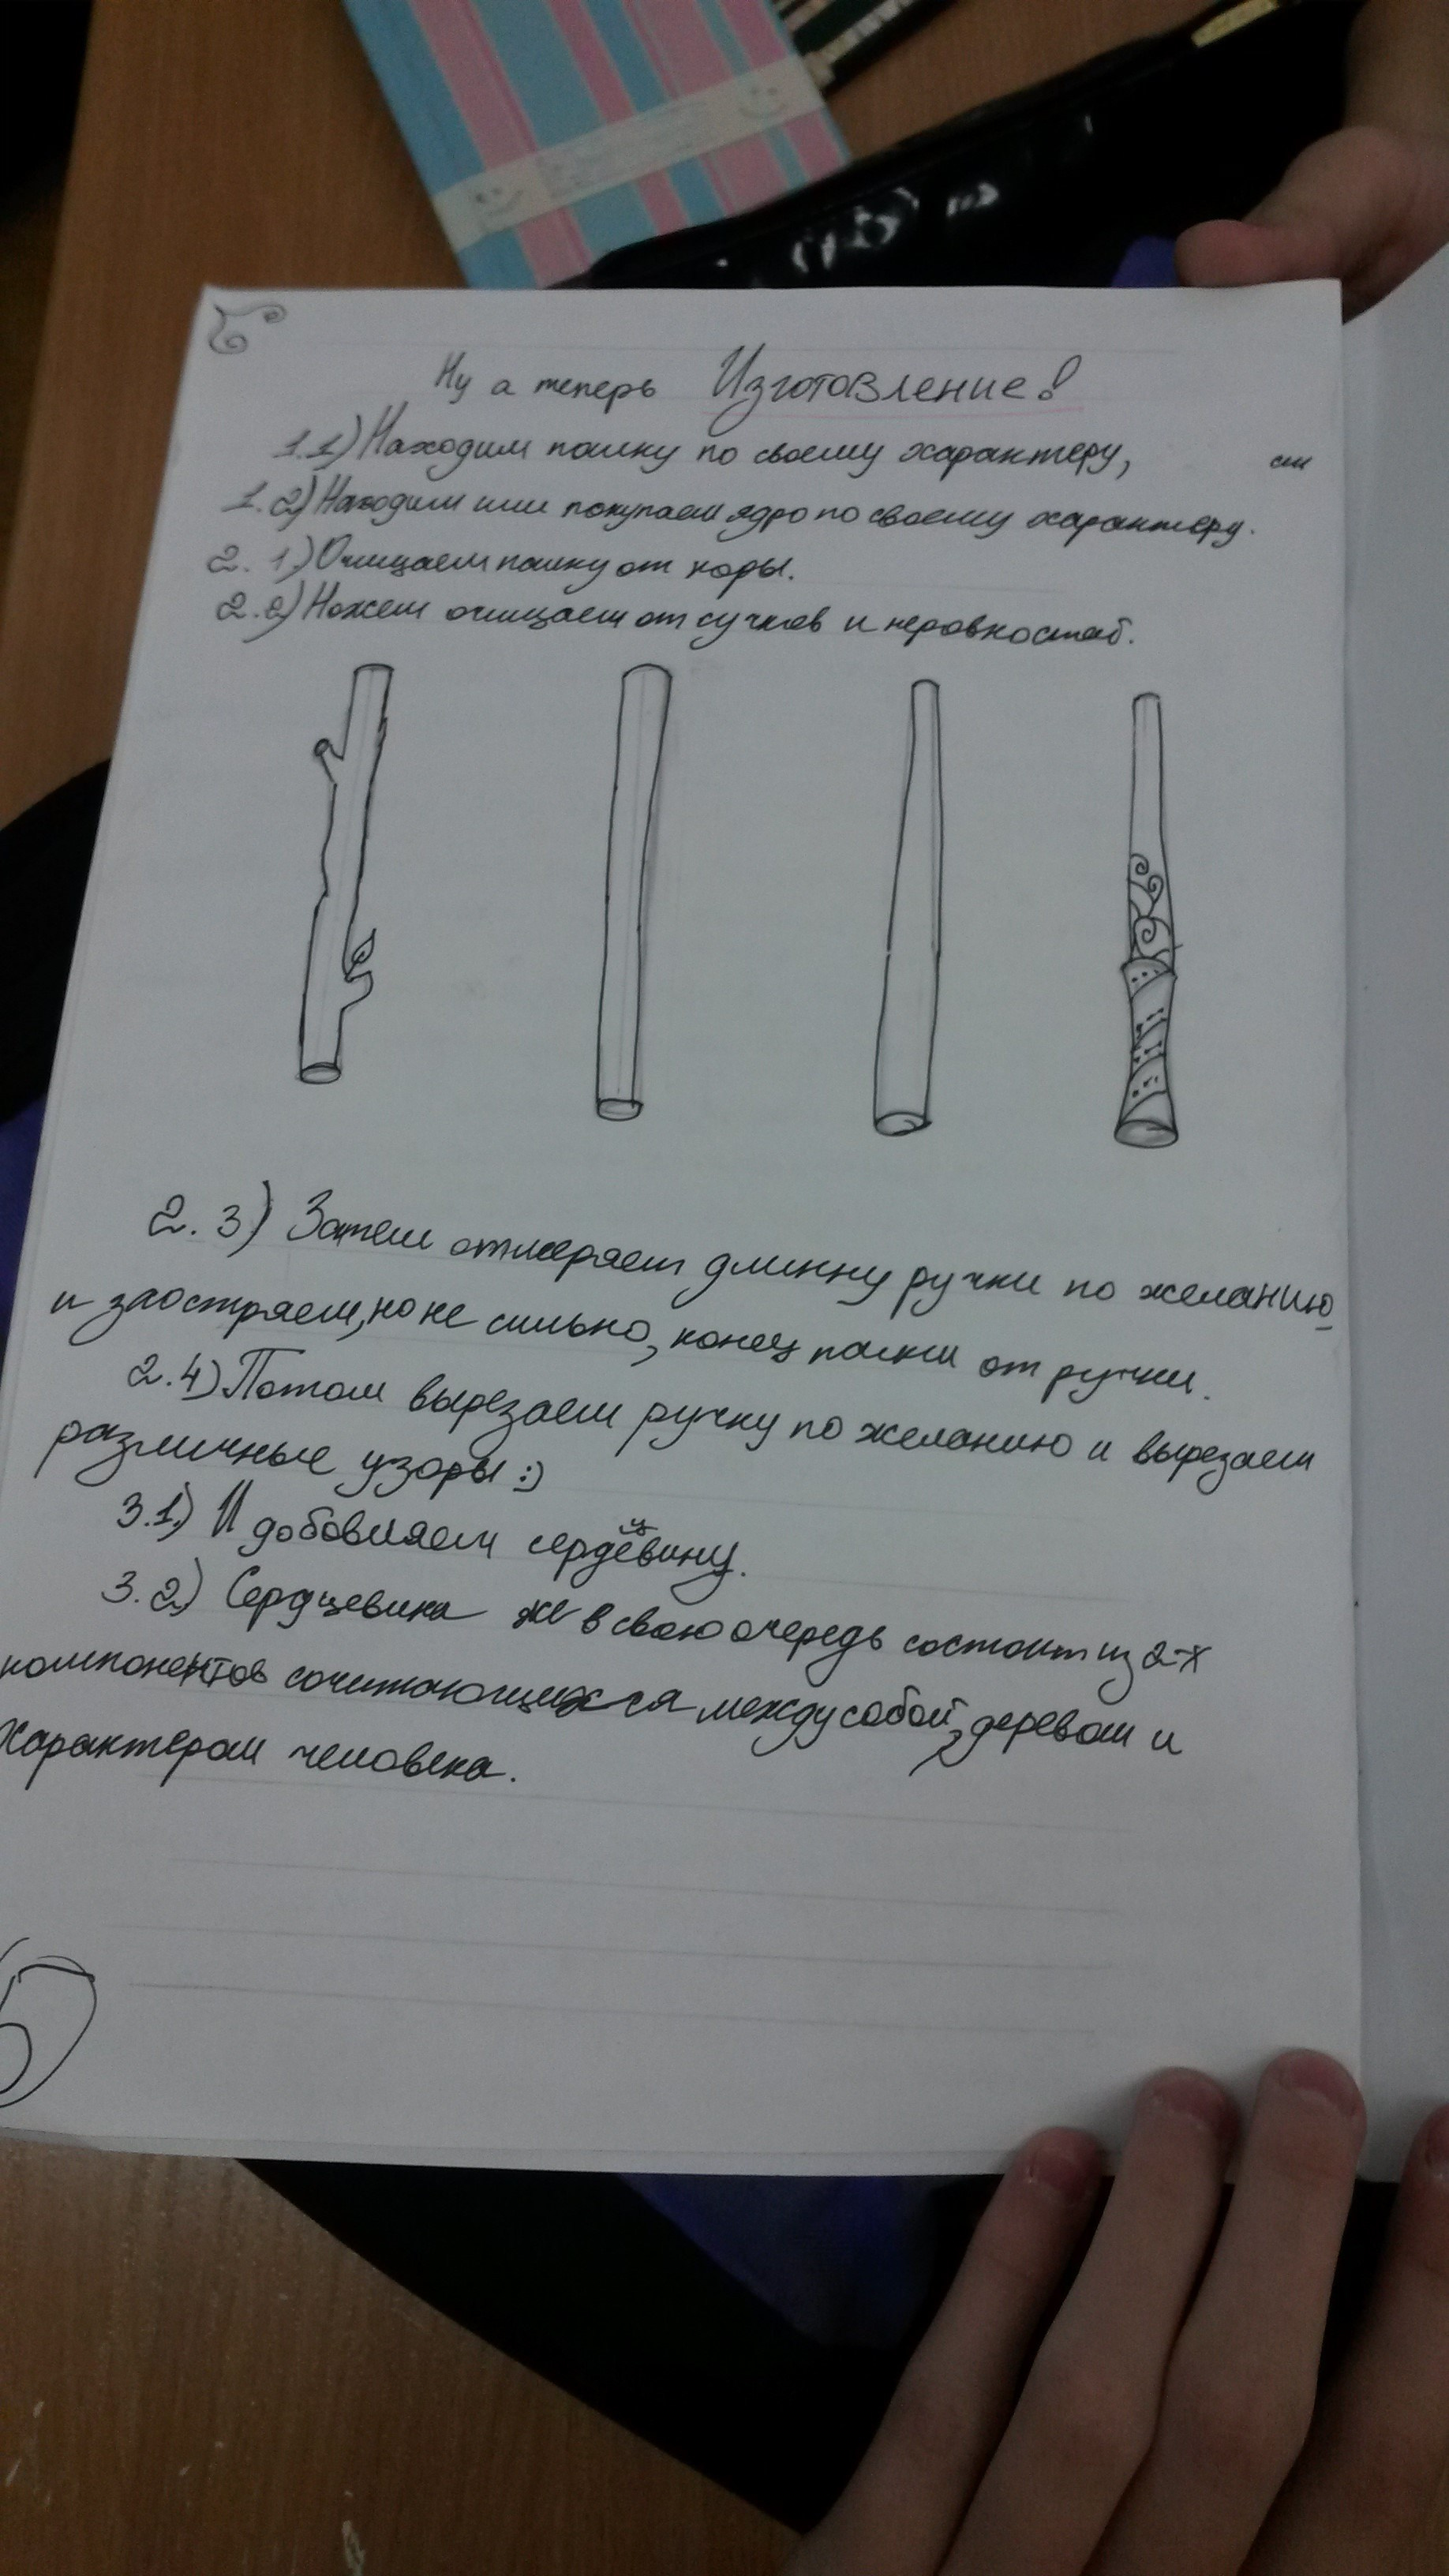 Ну а теперь Изготовление!
1.1) Находим палку по своему характеру,
1.2) Находим или покупаем ядро по своему характеру.
2.1) Очищаем палку от коры.
2.2) Ножем очищаем от сучков и неровностей.
2.3) Затем отмеряем длинну ручки по желанию,
и заостряем, но не сильно, конец палки от ручки.
2.4) Потом вырезаем ручку по желанию и вырезаем
различные узоры :)
3.1.) И добовляем сердцевину.
3.2) Сердцевина же в свою очередь состоит из 2-х
компонентов сочитающихся между собой, деревом и
характером человека.